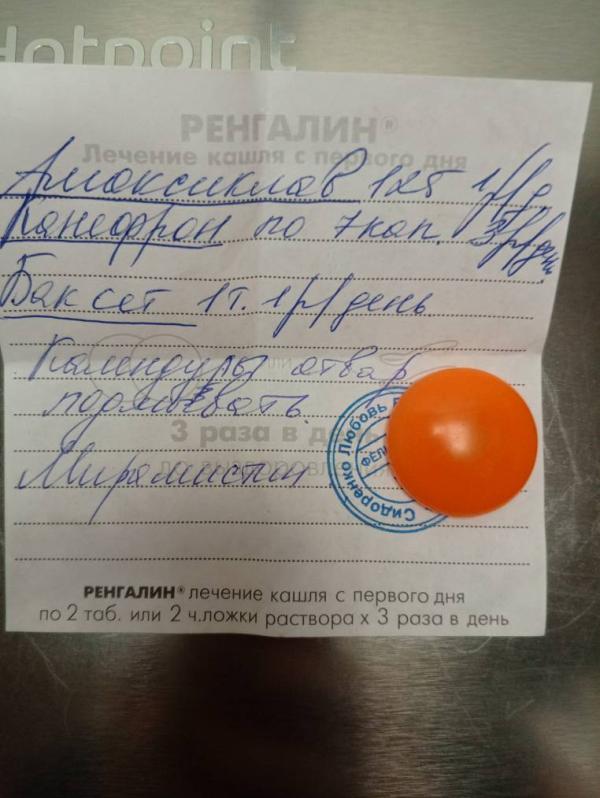 Hotpoint
РЕНГАЛИН®
Лечение кашля с первого дня
Амоксиклав 1 1р/д
Канефрон по 7 кап. 3р/день
Баксет 1т. 1р/день
Календулы отвар
подмывать
3 раза в день
до выздоровления
Мирамистин
Сидоренко Любовь
РЕНГАЛИН® лечение кашля с первого дня
по 2 таб. или 2 ч.ложки раствора х 3 раза в день